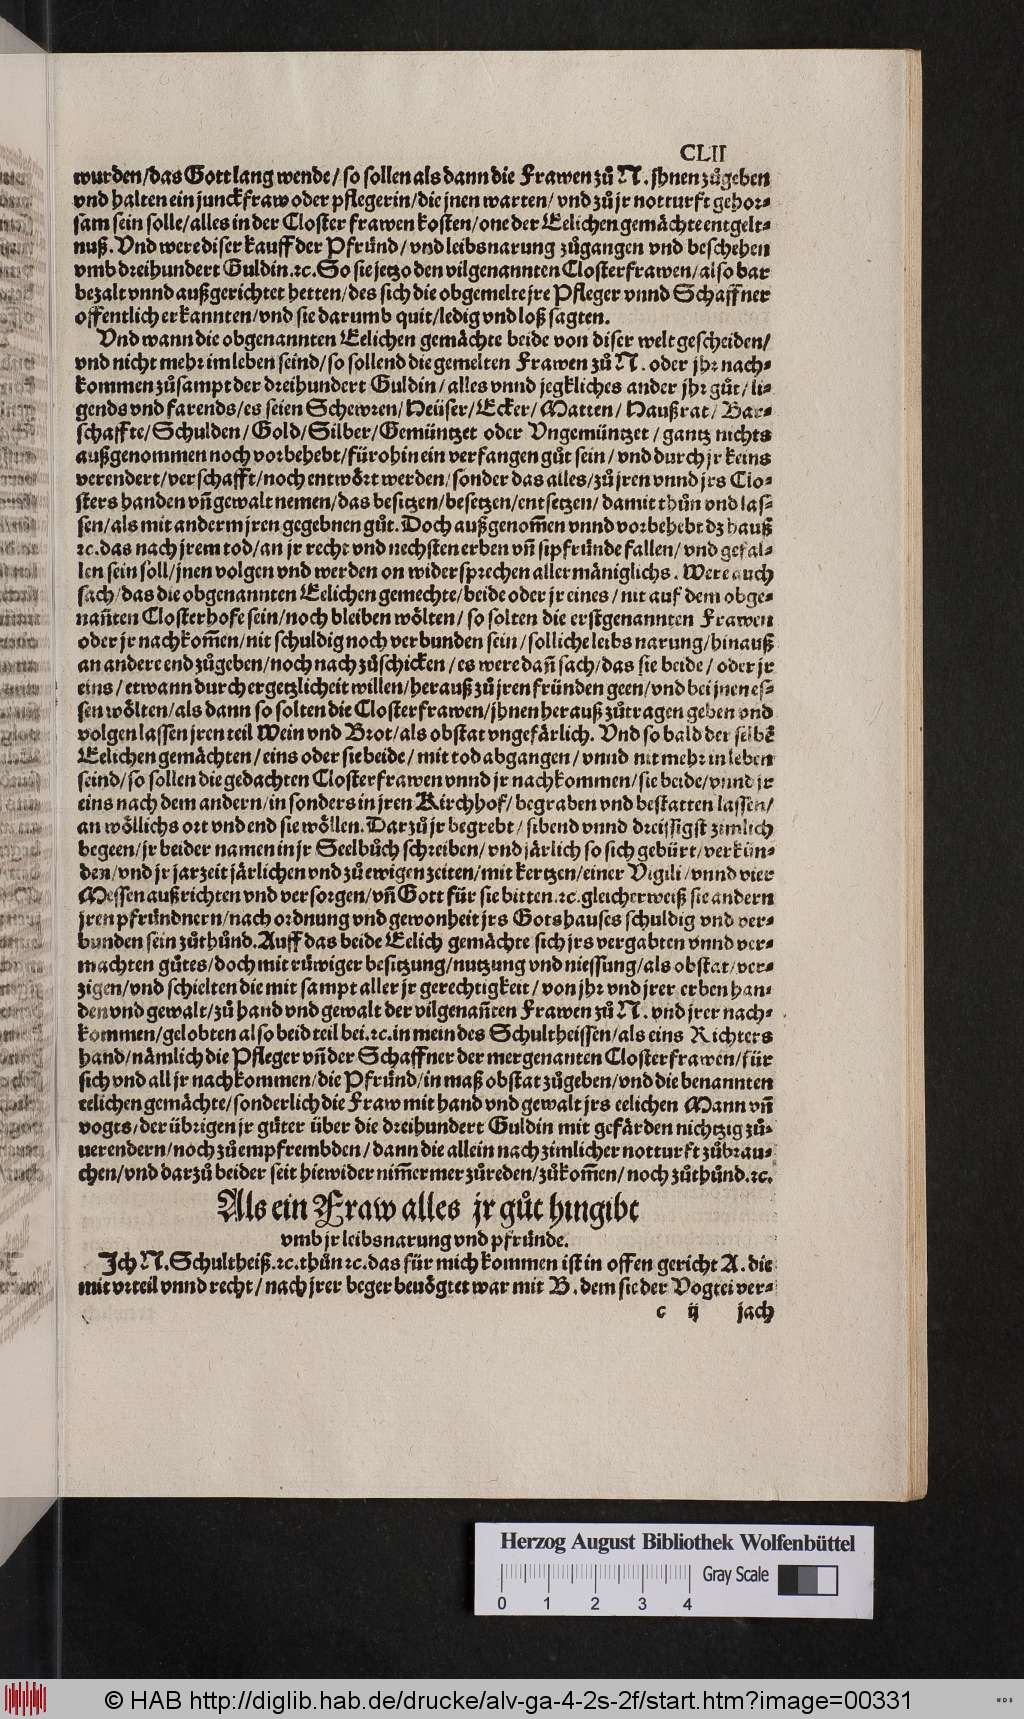 CLII
wurden/das Gott lang wende/ so sollen als dann die Frawen zů N. jhnen zůgeben
vnd halten ein junckfraw oder pflegerin/die jnen warten/ vnd zů jr notturft gehor⸗
sam sein solle/alles in der Closter frawen kosten/one der Eelichen gemächte entgelt⸗
nuß. Vnd were diser kauff der Pfründ/ vnd leibsnarung zůgangen vnd beschehen
vmb dreihundert Guldin.ꝛc. So sie jetzo den vilgenannten Closterfrawen/also bar
bezalt vnnd außgerichtet hetten/des sich die obgemelte jre Pfleger vnnd Schaffner
offentlich erkannten/vnd sie darumb quit/ledig vnd loß sagten.
Vnd wann die obgenannten Eelichen gemächte beide von diser welt gescheiden/
vnd nicht mehr im leben seind/so sollend die gemelten Frawen zů N. oder jhr nach⸗
kommen zůsampt der dreihundert Guldin/alles vnnd jegkliches ander jhr gůt/li⸗
gends vnd farends/es seien Schewren/Heüser/Ecker/Matten/Haußrat/Bar⸗
schaffte/Schulden/Gold/Silber/Gemüntzet oder Vngemüntzet/gantz nichts
außgenommen noch vorbehebt/fürohin ein verfangen gůt sein/vnd durch jr keins
verendert/verschafft/noch entwört werden/sonder das alles/zů jren vnnd jrs Clo⸗
sters handen vñ gewalt nemen/das besitzen/besetzen/entsetzen/damit thůn vnd las⸗
sen/als mit anderm jren gegebnen gůt. Doch außgenom̃en vnnd vorbehebt dz hauß
ꝛc. das nach jrem tod/an jr recht vnd nechsten erben vñ sipfründe fallen/vnd gefal⸗
len sein soll/jnen volgen vnd werden on widersprechen aller mäniglichs. Were auch
sach/das die obgenannten Eelichen gemechte/beide oder jr eines/nit auf dem obge⸗
nañten Closterhofe sein/noch bleiben wölten/so solten die erstgenannten Frawen
oder jr nachkom̃en/nit schuldig noch verbunden sein/solliche leibs narung/hinauß
an andere end zůgeben/noch nach zůschicken/es were dañ sach/das sie beide/oder jr
eins/etwann durch ergetzlicheit willen/herauß zů jren fründen geen/vnd bei jnen es⸗
sen wölten/als dann so solten die Closterfrawen/jhnen herauß zůtragen geben vnd
volgen lassen jren teil Wein vnd Brot/als obstat vngefärlich. Vnd so bald der selbẽ
Eelichen gemächten/eins oder sie beide/mit tod abgangen/vnnd nit mehr in leben
seind/so sollen die gedachten Closterfrawen vnnd jr nachkommen/sie beide/vnnd jr
eins nach dem andern/in sonders in jren Kirchhof/begraben vnd bestatten lassen/
an wöllichs ort vnd end sie wöllen. Darzů jr begrebt/sibend vnnd dreissigst zimlich
begeen/jr beider namen in jr Seelbůch schreiben/vnd järlich so sich gebürt/verkün⸗
den/vnd jr jarzeit järlichen vnd zů ewigen zeiten/mit kertzen/einer Vigili/vnnd vier
Messen außrichten vnd versorgen/vñ Gott für sie bitten.ꝛc. gleicherweiß sie andern
jren pfründnern/nach ordnung vnd gewonheit jrs Gotshauses schuldig vnd ver⸗
bunden sein zůthůnd. Auff das beide Eelich gemächte sich jrs vergabten vnnd ver⸗
machten gůtes/doch mit rüwiger besitzung/nutzung vnd niessung/als obstat/ver⸗
zigen/vnd schielten die mit sampt aller jr gerechtigkeit/von jhr vnd jrer erben han⸗
den vnd gewalt/zů hand vnd gewalt der vilgenañten Frawen zů N. vnd jrer nach⸗
kommen/gelobten also beid teil bei.ꝛc. in mein des Schultheissen/als eins Richters
hand/nämlich die Pfleger vñ der Schaffner der mergenanten Closterfrawen/für
sich vnd all jr nachkommen/die Pfründ/in maß obstat zůgeben/vnd die benannten
eelichen gemächte/sonderlich die Fraw mit hand vnd gewalt jrs eelichen Mann vñ
vogts/der übrigen jr güter über die dreihundert Guldin mit gefärden nichtzig zů⸗
uerendern/noch zůempfrembden/dann die allein nach zimlicher notturft zůbrau⸗
chen/vnd darzů beider seit hiewider nim̃ermer zůreden/zůkom̃en/noch zůthůnd.ꝛc.
Als ein Fraw alles jr gůt hingibt
vmb jr leibsnarung vnd pfründe.
Ich N. Schultheiß.ꝛc. thůn ꝛc. das für mich kommen ist in offen gericht A. die
mit vrteil vnnd recht/nach jrer beger beuögtet war mit B. dem sie der Vogtei ver⸗
c ij jach
Herzog August Bibliothek Wolfenbüttel
Gray Scale
0 1 2 3 4
© HAB http://diglib.hab.de/drucke/alv-ga-4-2s-2f/start.htm?image=00331